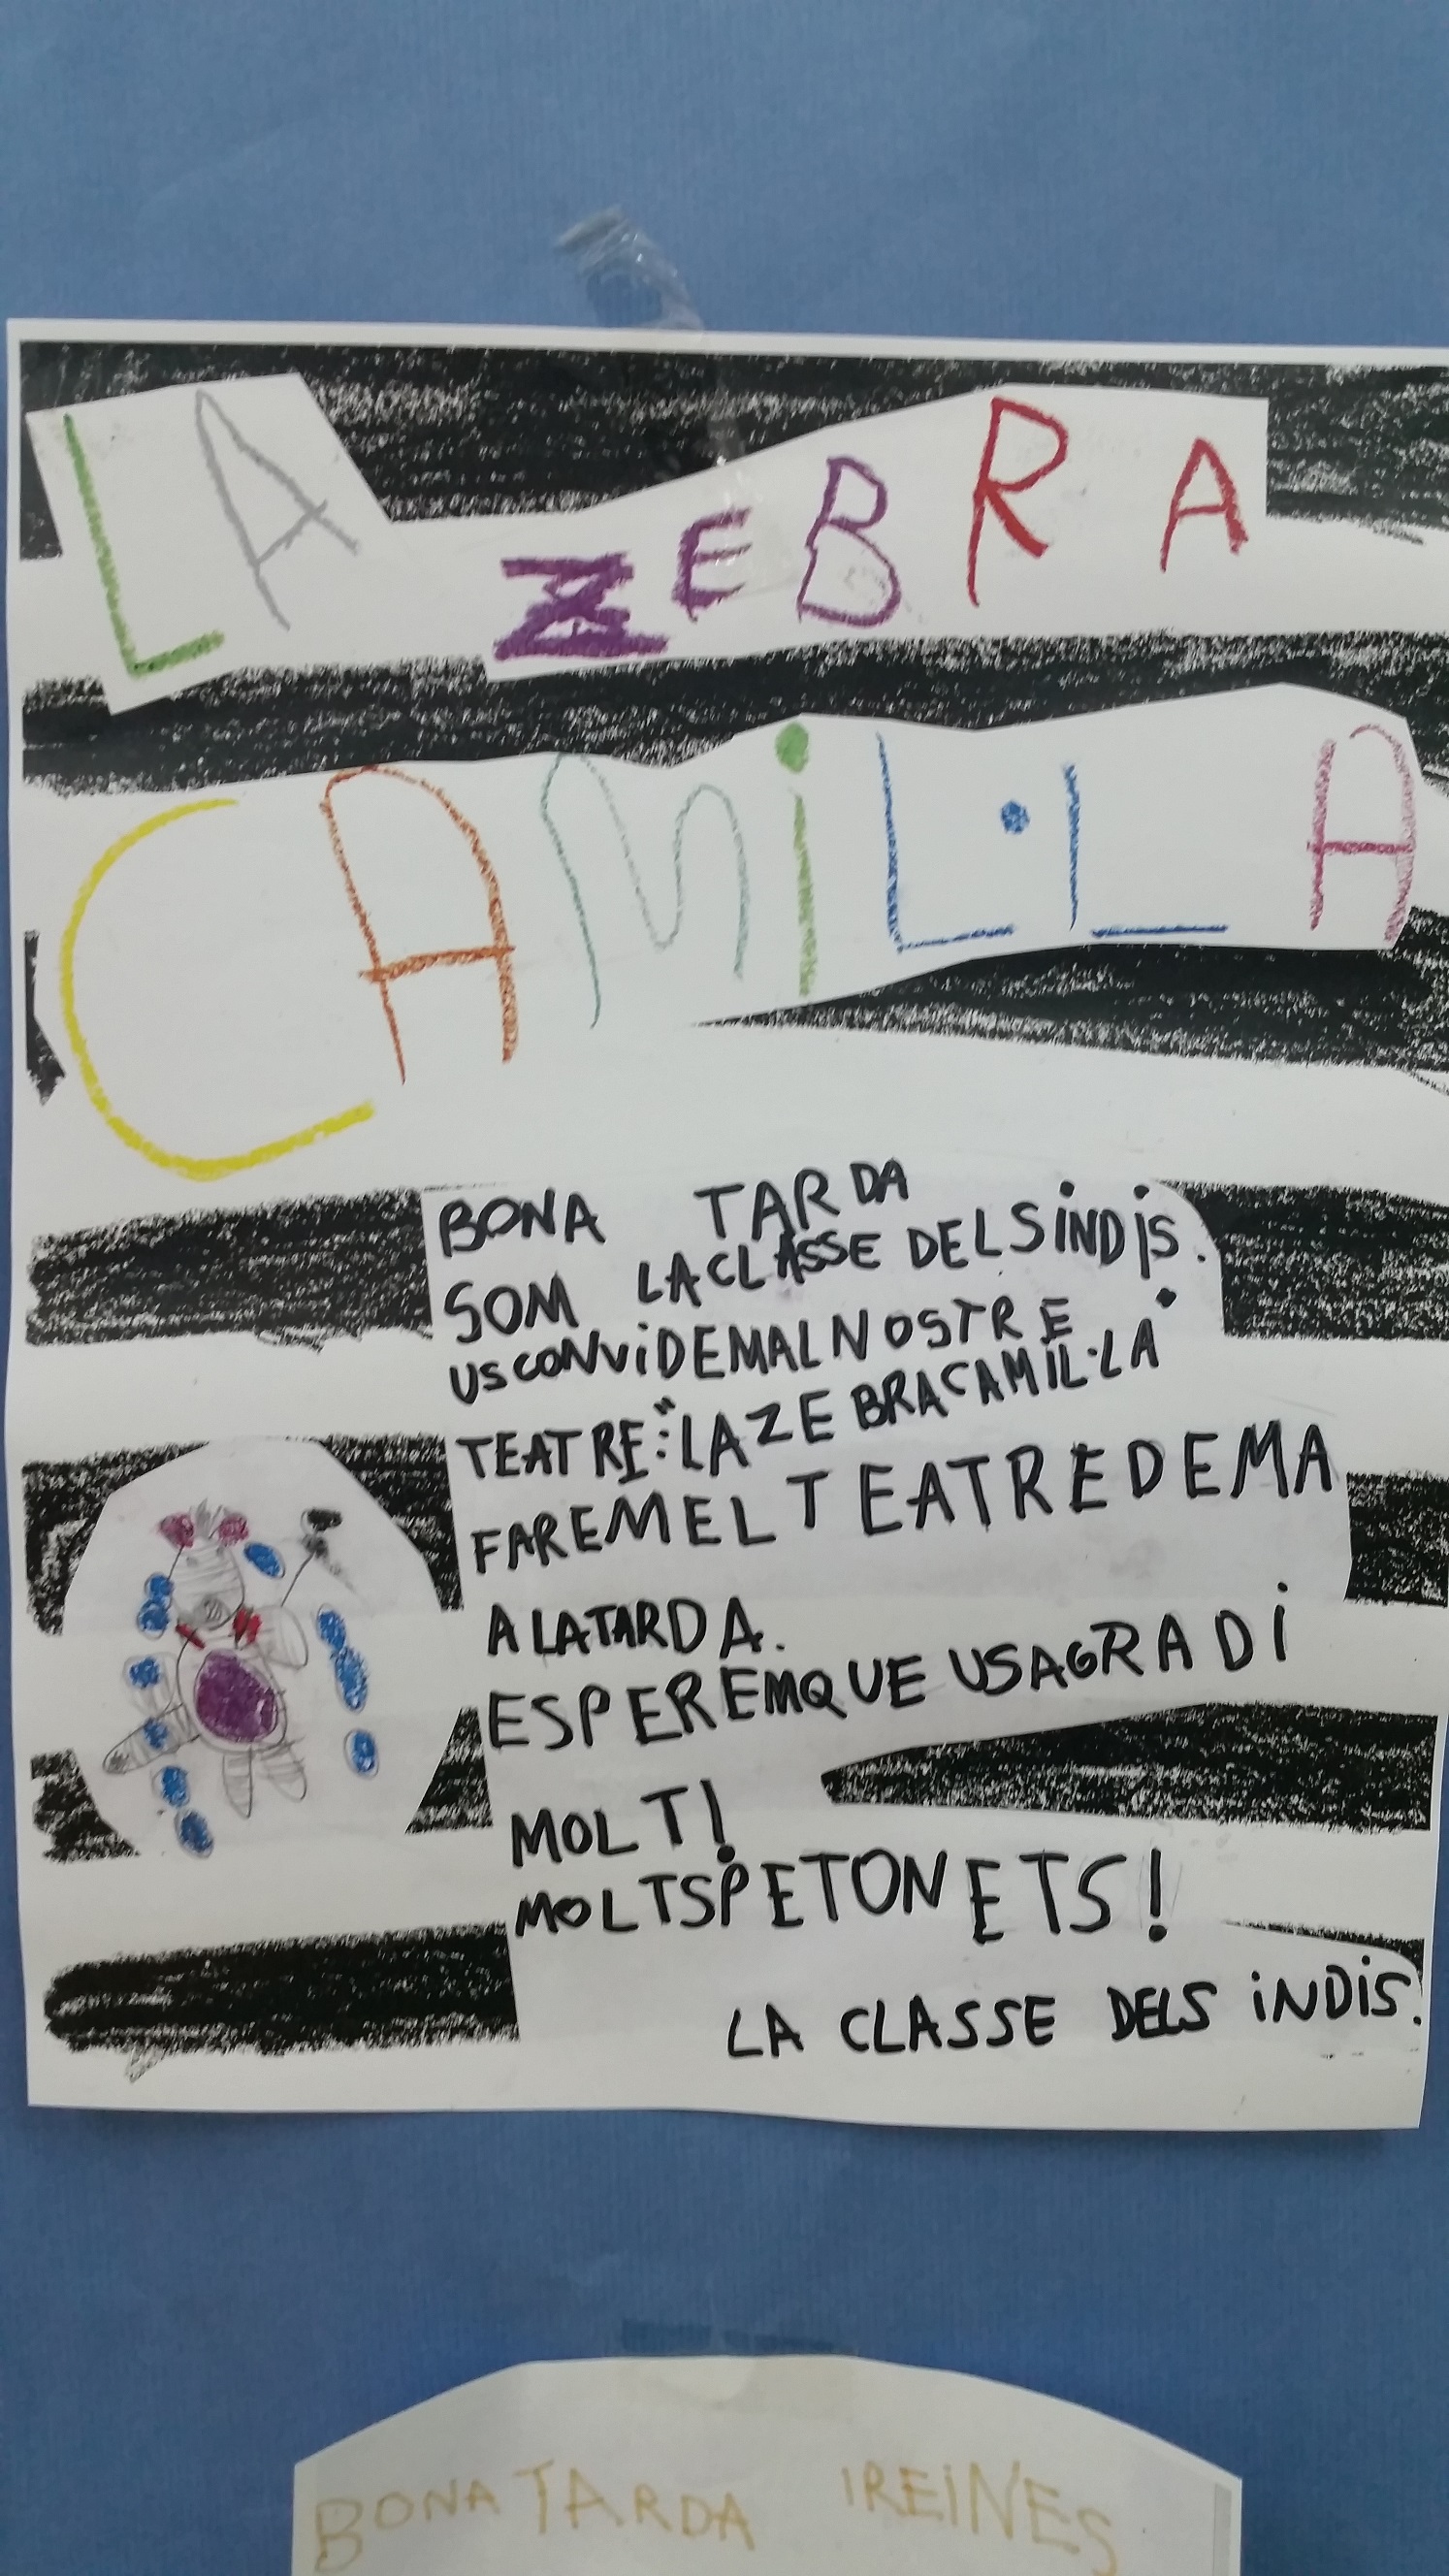 LA ZEBRA
CAMiL·LA
BONA TARDA
SOM LACLASSE DELSiNDiS.
USCONViDEMALNOSTRE
TEATRE:"LAZEBRACAMIL·LA"
FAREMELTEATREDEMA
ALATARDA.
ESPEREMQUE USAGRADi
MOLT!
MOLTSPETONETS!
LA CLASSE DELS iNDiS.
BONA TARDA IREiNES